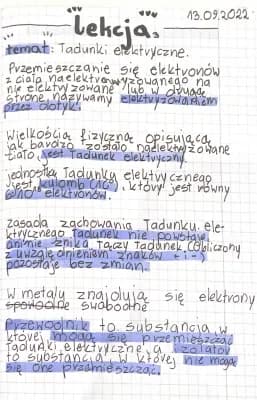 13.09.2022
Lekcja.
temat: Ładunki elektryczne.
Przemieszczanie się elektronów
z ciała naelektryzowanego na
nie elektryzowane lub w drugą
stronę nazywamy elektryzowaniem
przez dotyk.
Wielkością fizyczną opisującą
jak bardzo zostało naelektryzowane
ciało, jest ładunek elektryczny.
jednostką ładunku elektrycznego
jest kulomb (1C), który jest równy
elektronów.
Zasada zachowania ładunku ele-
ktrycznego ładunek nie powstaje
ani nie znika, łączy ładunek (obliczony
z uwzględnieniem znaków + i -)
pozostaje bez zmian.
W metalu znajdują się elektrony
swobodne
Przewodnik to substancja, w
której mogą się przemieszczać
ładunki elektryczne, a izolator
to substancja, w której nie mogą
się one przemieszczać.